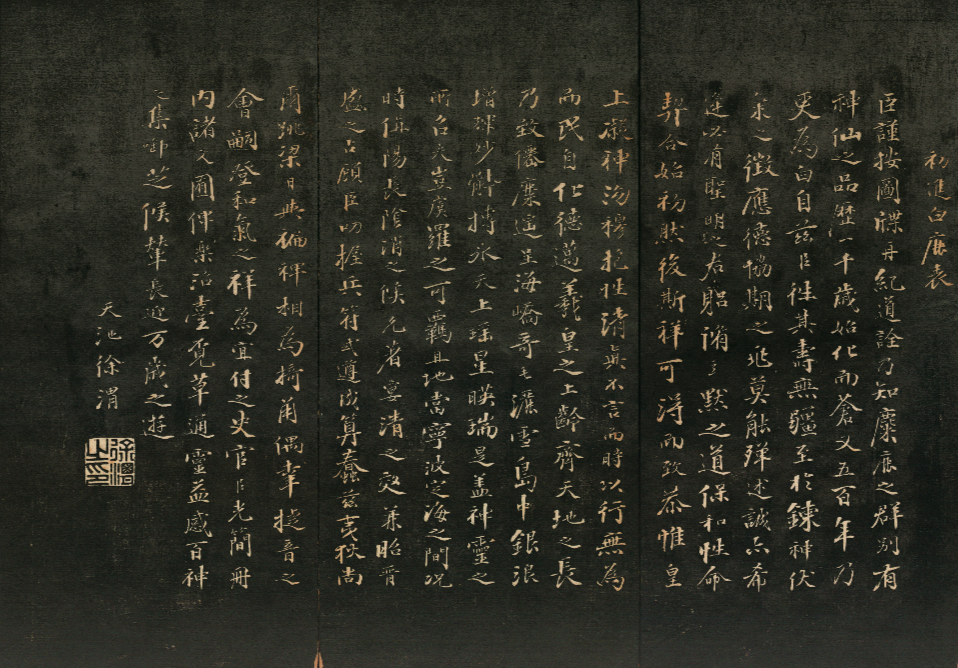 初進白鹿表
臣謹按圖牒再紀道詮乃知麋鹿之群別有
神仙之品歷一千歲始化而蒼又五百年乃
更為白自茲以往其壽無疆至於鍊神伏
氣之徵應德協期之兆莫能殫述誠亦希
逢必有聖明之君躬脩玄默之道保和性命
契合始初然後斯祥可得而致恭惟皇
上凝神沕穆抱性清真不言而時以行無為
而民自化德邁羲皇之上齡齊天地之長
乃致僊麋遙呈海嶠奇毛灑雪島中銀浪
增輝妙體摶冰天上瑤星暎瑞是蓋神靈之
所召夫豈虞羅之可羈且地當寧波定海之間況
時值陽長陰消之候允著宴清之效兼昭晉
盛之占顧臣叨握兵符式遵成算蠢茲夷狄尚
爾跳梁日與褊裨相為掎角偶幸捷音之
會嗣登和氣之祥為宜付之史官以光簡冊
內諸文囿俾樂沼臺覓草通靈益感百神
之集啣芝候輦長迎萬歲之遊
天池徐渭
徐渭之印